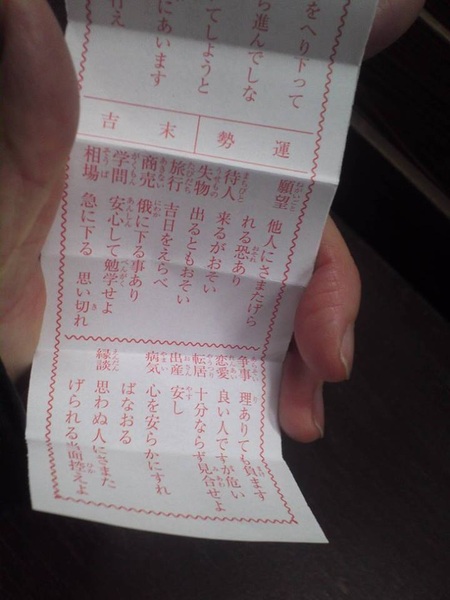 をへり下って
ら進んでしな
てしようと
にあいます
行え
運勢
末吉
願望 他人にさまたげら
れる恐あり
待人 来るがおそい
失物 出るともおそい
旅行 吉日をえらべ
商売 俄に下る事あり
学問 安心して勉学せよ
相場 急に下る 思い切れ
争事 理ありても負ます
恋愛 良い人ですが危い
転居 十分ならず見合せよ
出産 安し
病気 心を安らかにすれ
ばなおる
縁談 思わぬ人にさまた
げられる当面控えよ